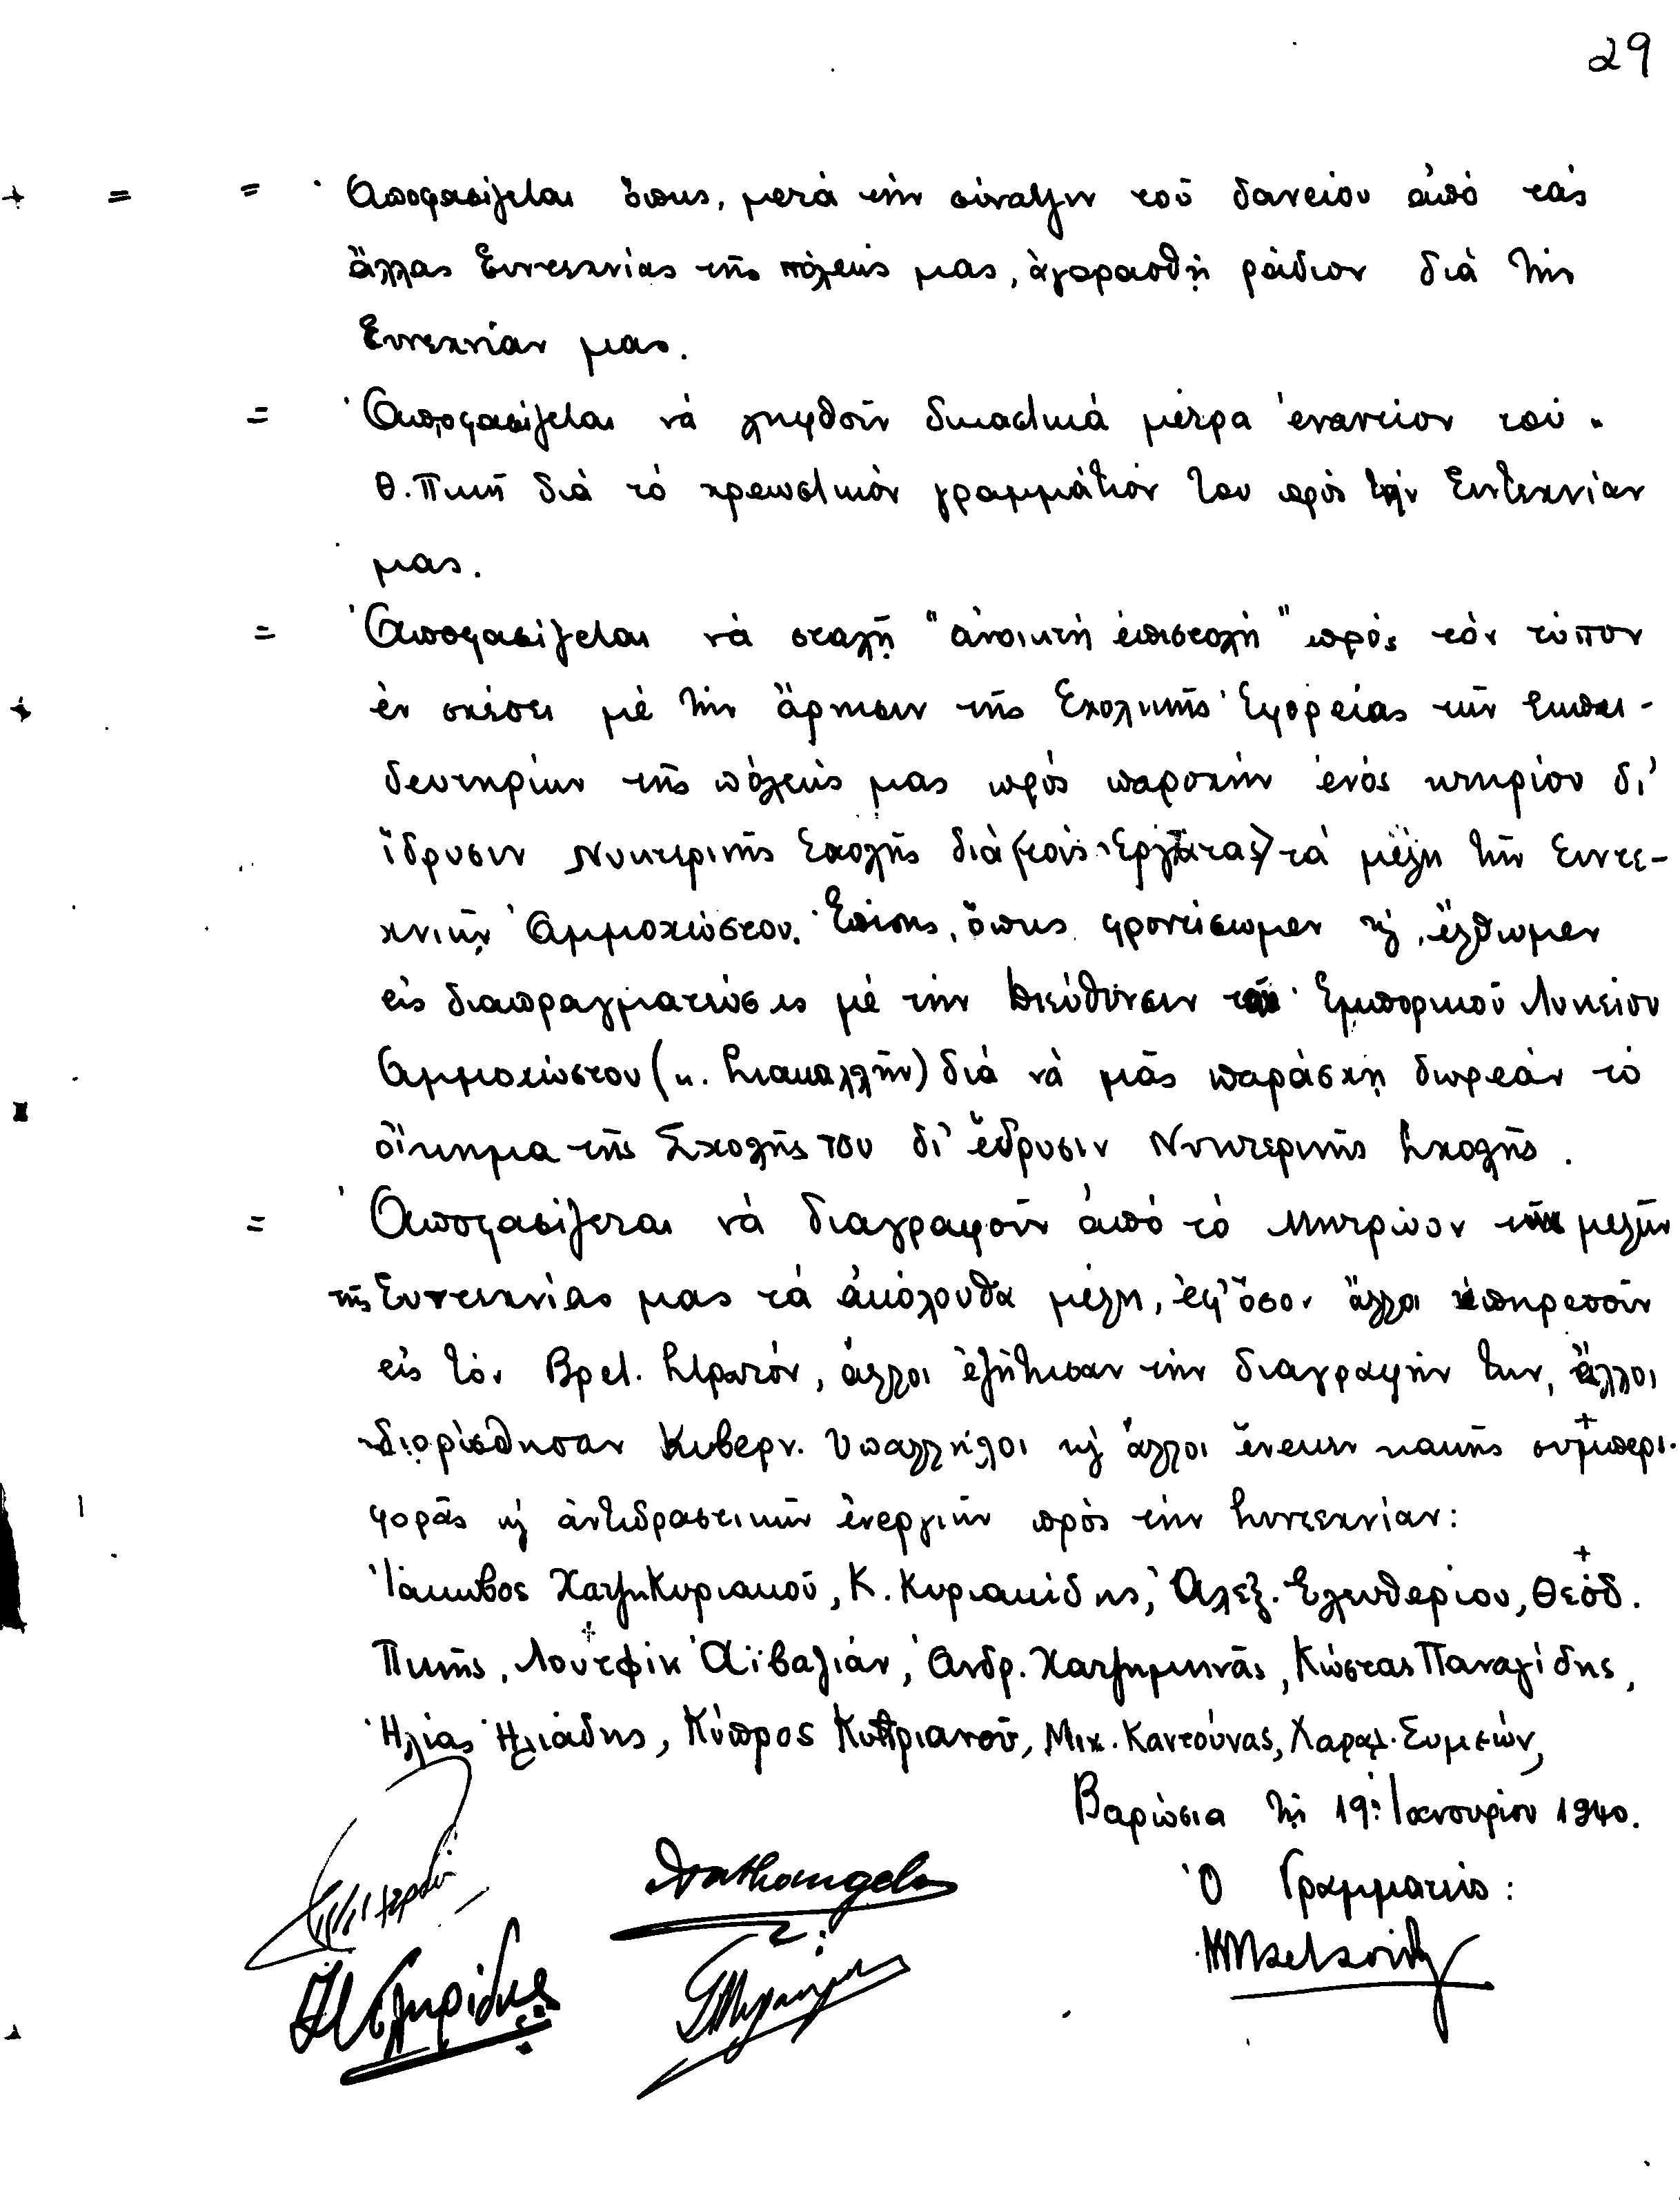 29
+ = = Ἀποφασίζεται ὅπως, μετὰ τὴν σύναξιν τοῦ δανείου ἀπὸ τὰς
ἄλλας Συντεχνίας τῆς πόλεώς μας, ἀγορασθῇ ράδιον διὰ τὴν
Συντεχνίαν μας.
= Ἀποφασίζεται νὰ ληφθοῦν δικαστικὰ μέτρα ἐναντίον τοῦ
Θ. Πικῆ διὰ τὸ χρεωστικὸν γραμμάτιόν του πρὸς τὴν Συντεχνίαν
μας.
= Ἀποφασίζεται νὰ σταλῇ "ἀνοικτὴ ἐπιστολὴ" πρὸς τὸν τύπον
ἐν σχέσει μὲ τὴν ἄρνησιν τῆς Σχολικῆς Ἐφορείας τῶν ἐκπαι-
δευτηρίων τῆς πόλεώς μας πρὸς παροχὴν ἑνὸς κτηρίου δι'
ἵδρυσιν Νυκτερινῆς Σχολῆς διὰ (τοὺς Ἐργάτας) τὰ μέλη τῶν Συντε-
χνιῶν Ἀμμοχώστου. Ἐπίσης, ὅπως φροντίσωμεν κ' ἔλθωμεν
εἰς διαπραγματεύσεις μὲ τὴν Διεύθυνσιν τοῦ Ἐμπορικοῦ Λυκείου
Ἀμμοχώστου (κ. Σιακαλλῆν) διὰ νὰ μᾶς παράσχῃ δωρεὰν τὸ
οἴκημα τῆς Σχολῆς του δι' ἕδρυσιν Νυκτερινῆς Σχολῆς.
= Ἀποφασίζεται νὰ διαγραφοῦν ἀπὸ τὸ Μητρῶον τῶν μελῶν
τῆς Συντεχνίας μας τὰ ἀκόλουθα μέλη, ἐφ' ὅσον ἄλλοι ὑπηρετοῦν
εἰς τὸν Βρετ. Στρατόν, ἄλλοι ἐζήτησαν τὴν διαγραφήν των, ἄλλοι
διορίσθησαν Κυβερν. Ὑπαλλήλοι κ' ἄλλοι ἕνεκεν κακῆς συμπερι-
φορᾶς κ' ἀντιδραστικῶν ἐνεργιῶν πρὸς τὴν Συντεχνίαν:
Ἰάκωβος ΧατζηΚυριακοῦ, Κ. Κυριακίδης, Ἀλεξ. Ἐλευθερίου, Θεόδ.
Πικῆς, Λουτφὶκ Ἀϊβαζιάν, Ἀνδρ. Χατζημηνᾶς, Κώστας Παναγίδης,
Ἠλίας Ἠλιάδης, Κύπρος Κυπριανοῦ, Μιχ. Καντούνας, Χαραλ. Συμεών,
Βαρώσια τῇ 19ῃ Ἰανουαρίου 1940.
Ὁ Γραμματεὺς: